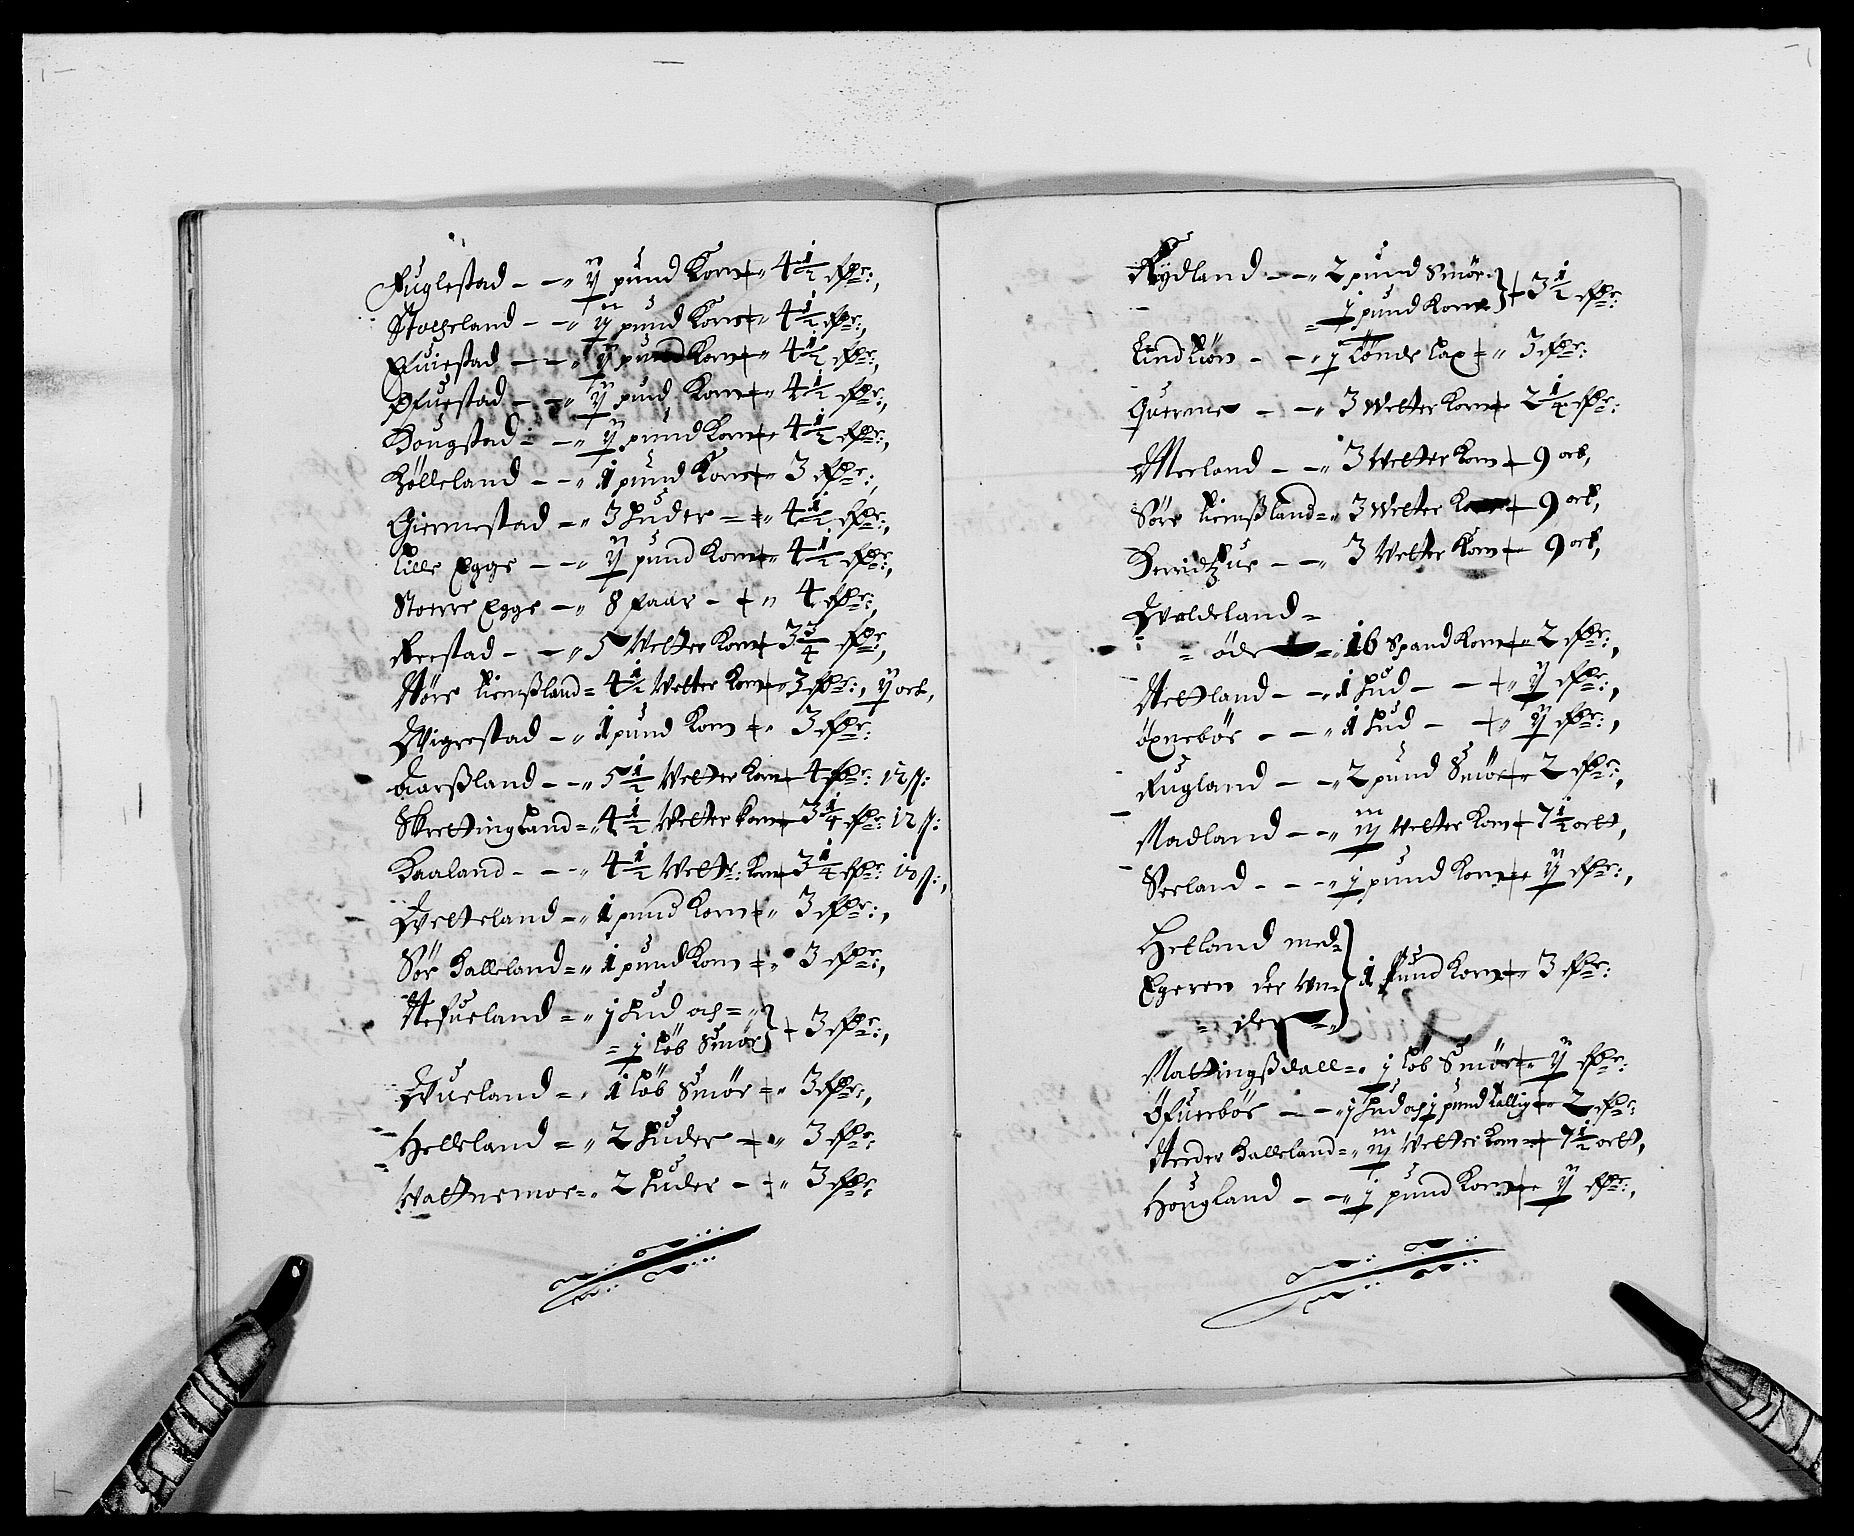 Fuglestad - - ij pund Korn - 4 1/2 rdr:,
Stocheland - - ij pund Korn - 4 1/2 rdr:,
Efuiestad - - ij pund Korn - 4 1/2 rdr:,
Øfuestad - - ij pund Korn - 4 1/2 rdr:,
Hougstad - - ij pund Korn - 4 1/2 rdr:,
Hölleland - - 1 pund Korn - 3 rdr:,
Giermestad = 3 Huder = 4 1/2 rdr:,
Lille Egge - - ij pund Korn - 4 1/2 rdr:,
Stoerre Egge - 8 Faar - 4 rdr:,
Reestad - - 5 Wetter Korn - 3 3/4 rdr:,
Nöre Liemsland = 4 1/2 Wetter Korn - 3 rdr:, ij ort,
Wigrestad - 1 pund Korn - 3 rdr:
Aarsland - - 5 1/2 Wetter Korn - 4 rdr: 12 s:
Skrettingland = 4 1/2 Wetter Korn - 3 1/4 rdr: 12 s:
Kaaland - - - 4 1/2 Wettr: Korn - 3 1/4 rdr: 12 s:,
Wetteland - 1 pund Korn - 3 rdr:,
Sör Kalleland = 1 pund Korn - 3 rdr:,
Nefueland = j Hud och =
= j löb Smör } - 3 rdr:,
Wueland = 1 löb Smör = 3 rdr:,
Helleland = 2 Huder - 3 rdr:
Wattnemoe = 2 Huder - 3 rdr:
Rydland - - 2 pund Smör
= j pund Korn } 3 1/2 rdr:
Lindtiön - - j tönde Lax = 3 rdr:
Querme - - 3 Wetter Korn - 2 1/4 rdr:
Meeland - - 3 Wetter Korn - 9 ort,
Söre Liemsland = 3 Wetter Korn - 9 ort,
- - 3 Wetter Korn - 9 ort,
Woldeland =
= öde = 16 Spand Korn - 2 rdr:,
Nettland - - 1 Hud - - ij rdr:,
öxnebör - - 1 Hud - ij rdr:,
Fugland - - 2 pund Smör - 2 rdr:,
Madland - - iij Wetter Korn - 7 1/2 ort,
Seeland - - - j pund Korn - ij rdr:,
Hetland med =
Egeren der un=
= der = } 1 Pund Korn - 3 rdr:
Mattingsdall = j löb Smör - ij rdr:
Öfuerböe - - j Hud och j pund tallig - 2 rdr:
Neder Kalleland = iij Wetter Korn - 7 1/2 ort,
Hougland - - j pund Korn - ij rdr:,